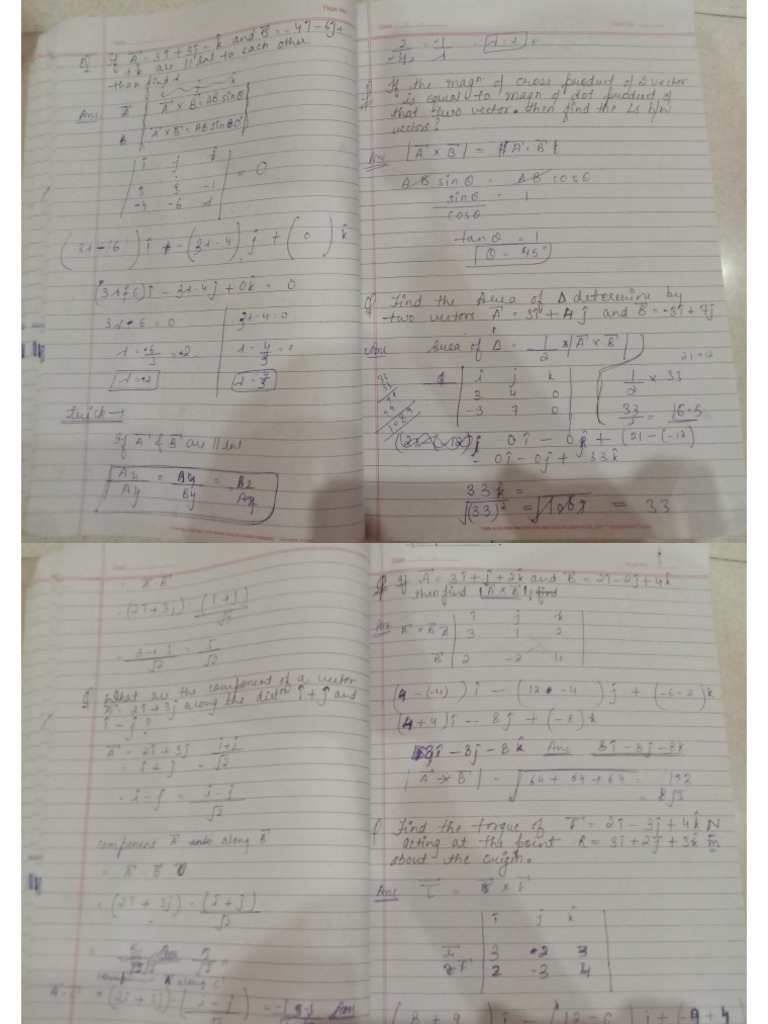 Page No.
Q If A = 3î + 3ĵ - k̂ and B = -4î - 6ĵ +
λk are ||lel to each other
then find λ
Ans A A × B = AB sinθ
A × B = AB sin 0°
i j k
3 3 -1 = 0
-4 -6 λ
(3λ - 6) î - (3λ - 4) ĵ + (0) k̂
(3λ - 6)î - 3λ - 4ĵ + 0k̂ = 0
3λ - 6 = 0 3λ - 4 = 0
trick→
If A & B are ||lel
Date
λ = 2
Q If the magn of cross product of 2 vector
is equal to magn of dot product of
that two vector. then find the ∠s b/w
vectors?
Ans |A × B| = |A · B|
AB sinθ = AB cosθ
sinθ/cosθ = 1
tanθ = 1
θ = 45°
Q Find the Area of Δ determine by
two vectors A = 3î + 4ĵ and B = -3î + 7ĵ
Ans Area of Δ = 1/2 × |A × B|
21+12
i j k
3 4 0
-3 7 0
1/2 × 33
33/2 = 16.5
0î - 0ĵ + (21 - (-12)
- 0î - 0ĵ + 33k
33k =
√(33)² = √1089 = 33
A·B
(2î + 3ĵ) (î + ĵ)/√2
2+3/√2 = 5/√2
Q What are the component of a vector
A = 2î + 3ĵ along the distn î + ĵ and
î - ĵ ?
A = 2î + 3ĵ i+j
- i + j = √2
- i - j = i - j/√2
component A along B
= A · B
= (2î + 3ĵ) · (î + ĵ)/√2
5/√2
A along C
= (2î + 3ĵ) · (i - j)/√2 Ans
Date
Q If A = 3î + ĵ + 2k̂ and B = 2î - 2ĵ + 4k̂
then find |A × B|
i j k
Ans A × B A 3 1 2
B 2 -2 4
(4 - (-4)) î - (12 - 4) ĵ + (-6 - 2) k
(4 + 4)î - 8ĵ + (-8)k
8î - 8ĵ - 8k̂ Ans 8î - 8ĵ - 8k
|A × B| = √64 + 64 + 64 = 192
= 8√3
Q Find the torque of F = 2î - 3ĵ + 4k̂ N
acting at the point R = 3î + 2ĵ + 3k̂ m
about the origin.
Ans τ = r × F
i j k
r 3 2 3
F 2 -3 4
(8 + 9) i - (12 - 6) j + (-9 + 4)